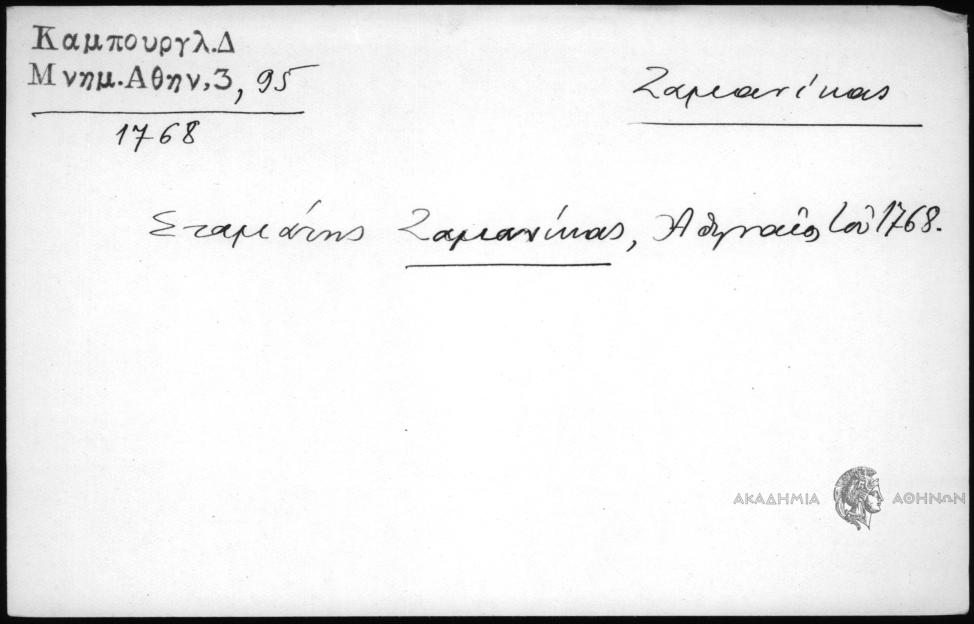 Καμπουργλ.Δ
Μνημ.Αθην,3, 95
1768
Ζαμανίκας
Σταμάτης Ζαμανίκας, Ἀθηναῖος τοῦ 1768.
ΑΚΑΔΗΜΙΑ ΑΘΗΝΩΝ